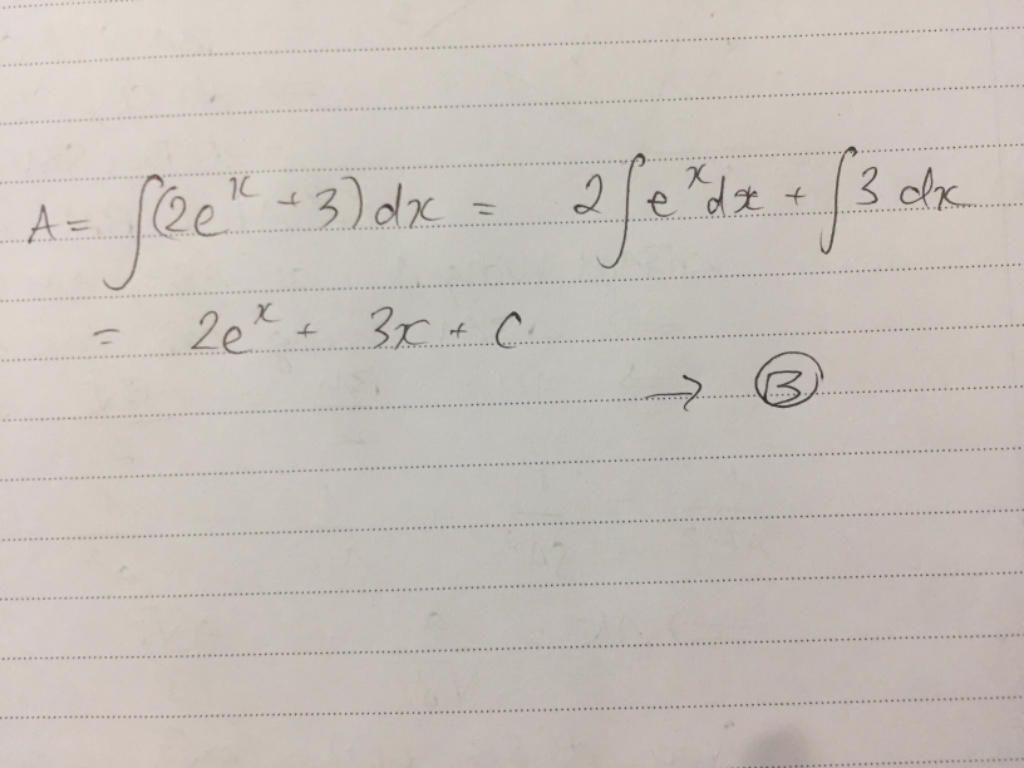 A = ∫(2e^x + 3) dx = 2∫e^x dx + ∫3 dx
= 2e^x + 3x + C
→ Ⓑ